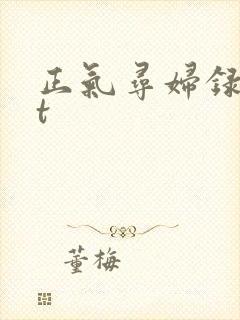 正氣尋婦録
t
董梅